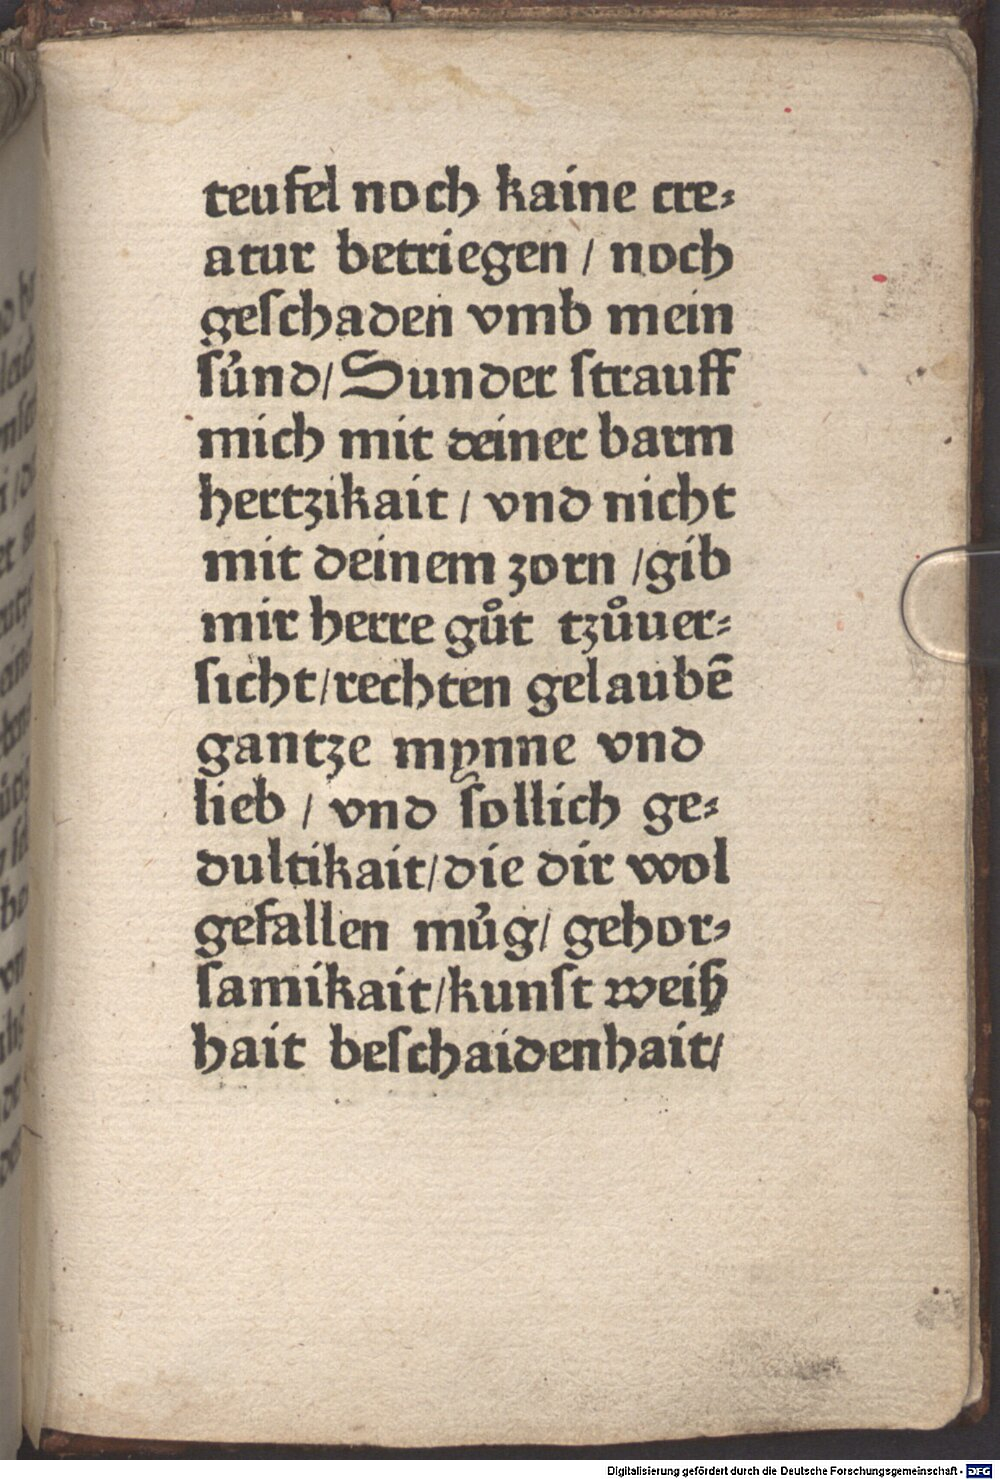 teufel noch kaine cre⸗
atur betriegen / noch
geſchaden vmb mein
ſu̓nd/ Sunder ſtrauff
mich mit deiner barm
hertzikait / vnd nicht
mit deinem zorn /gib
mir herre gůt tzůuer⸗
ſicht/rechten gelaubē
gantze mynne vnd
lieb / vnd ſollich ge⸗
dultikait/die dir wol
gefallen mu̓g/ gehor⸗
ſamikait/kunſt weiß
hait beſchaidenhait/
Digitalisierung gefördert durch die Deutsche Forschungsgemeinschaft - DFG